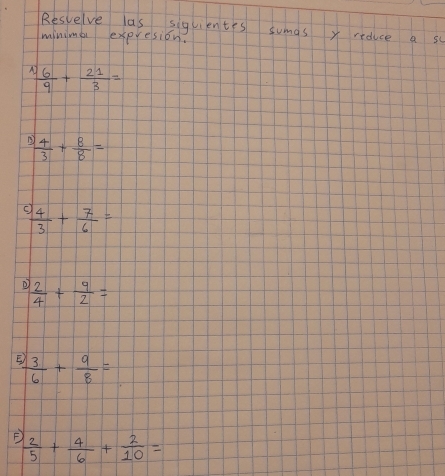 Resuelve las siguientes sumas y reduce a su
mínima expresión.
A) 6/9 + 21/3 =
B) 4/3 + 8/8 =
C) 4/3 + 7/6 =
D) 2/4 + 9/2 =
E) 3/6 + 9/8 =
F) 2/5 + 4/6 + 2/10 =